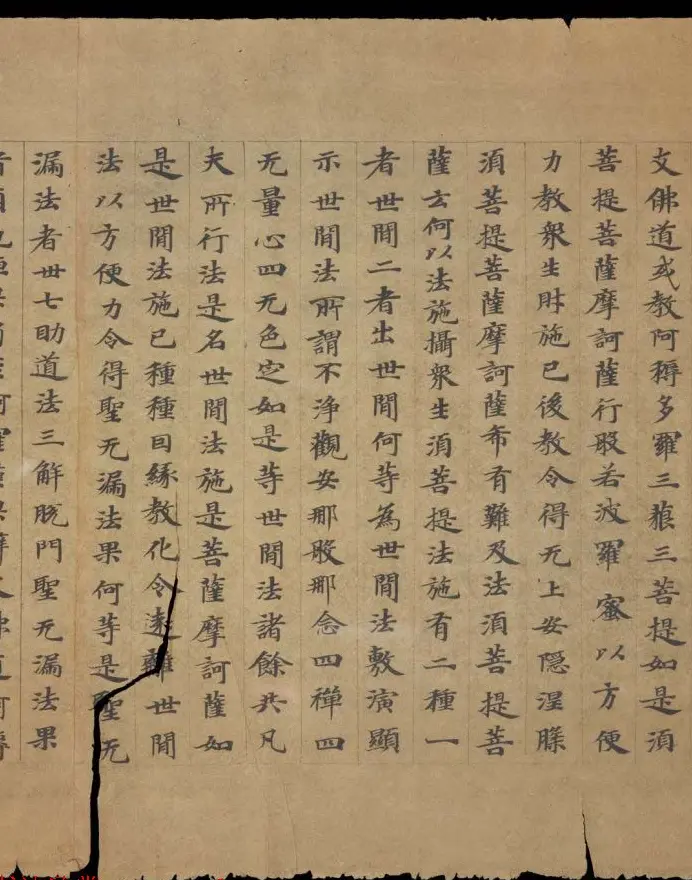 支佛道或教阿耨多羅三藐三菩提如是須
菩提菩薩摩訶薩行般若波羅蜜以方便
力教衆生財施已後教令得无上安隱涅槃
須菩提菩薩摩訶薩希有難及法須菩提菩
薩云何以法施攝衆生須菩提法施有二種一
者世間二者出世間何等為世間法敷演顯
示世間法所謂不淨觀安那般那念四禪四
无量心四无色定如是等世間法諸餘共凡
夫所行法是名世間法施是菩薩摩訶薩如
是世間法施已種種因緣教化令遠離世間
法以方便力令得聖无漏法果何等是聖无
漏法者卅七助道法三解脫門聖无漏法果